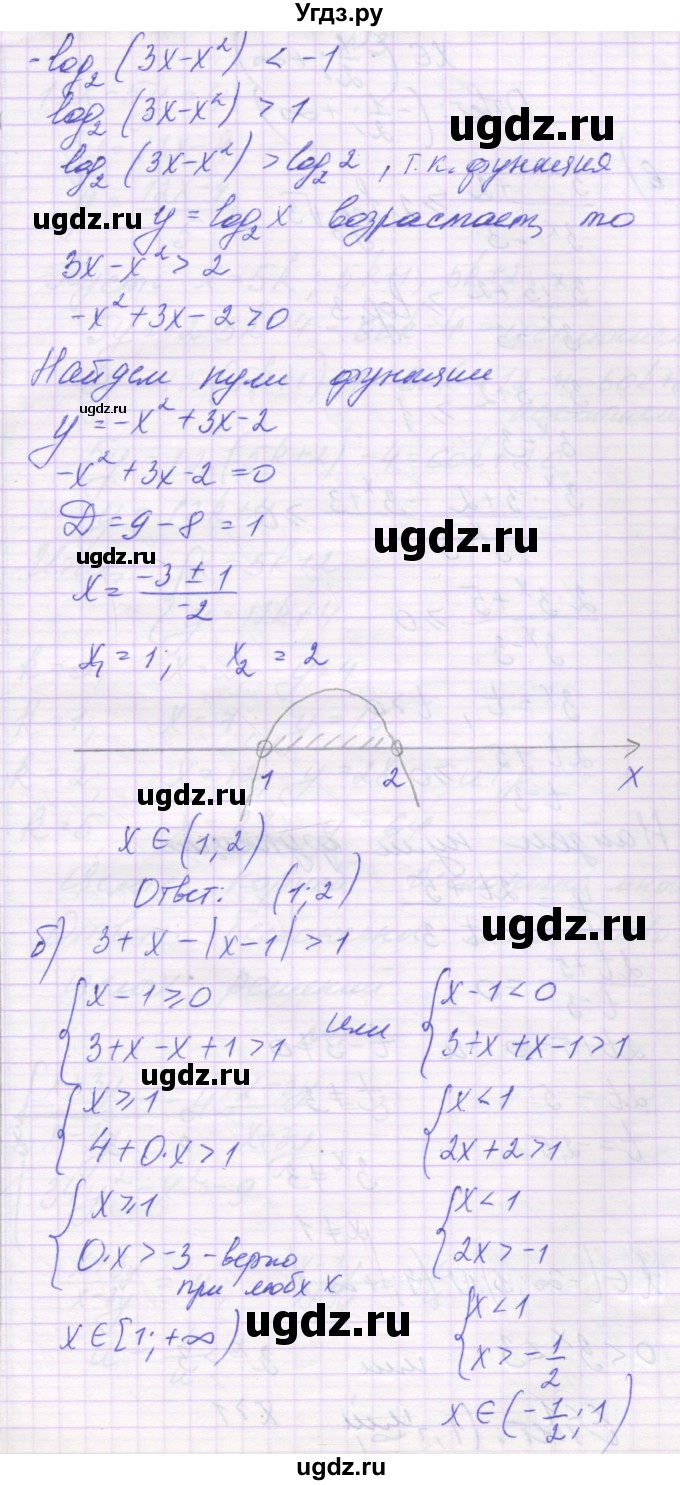 Угдз.ру
-log₂(3x-x²) < -1
log₂(3x-x²) > 1
ugdz.ru
log₂(3x-x²) > log₂2, т.к. функция
ugdz.ru
y = log₂x возрастает, то
3x-x² > 2
-x²+3x-2 > 0
Найдем нули функции
ugdz.ru
y = -x²+3x-2
-x²+3x-2 = 0
D = 9-8 = 1
ugdz.ru
ugdz.ru
x = (-3 ± 1)/(-2)
x₁ = 1; x₂ = 2
1 2 x
ugdz.ru
x ∈ (1; 2)
Ответ: (1; 2)
ugdz.ru
б) 3 + x - |x-1| > 1
{ x-1 ≥ 0 или { x-1 < 0
{ 3+x-x+1 > 1 { 3+x+x-1 > 1
ugdz.ru
{ x ≥ 1 { x < 1
{ 4+0·x > 1 { 2x+2 > 1
{ x ≥ 1 { x < 1
{ 0·x > -3 - верно { 2x > -1
при любх x
ugdz.ru
x ∈ [1; +∞) { x < 1
{ x > -1/2
x ∈ (-1/2; 1)
ugdz.ru